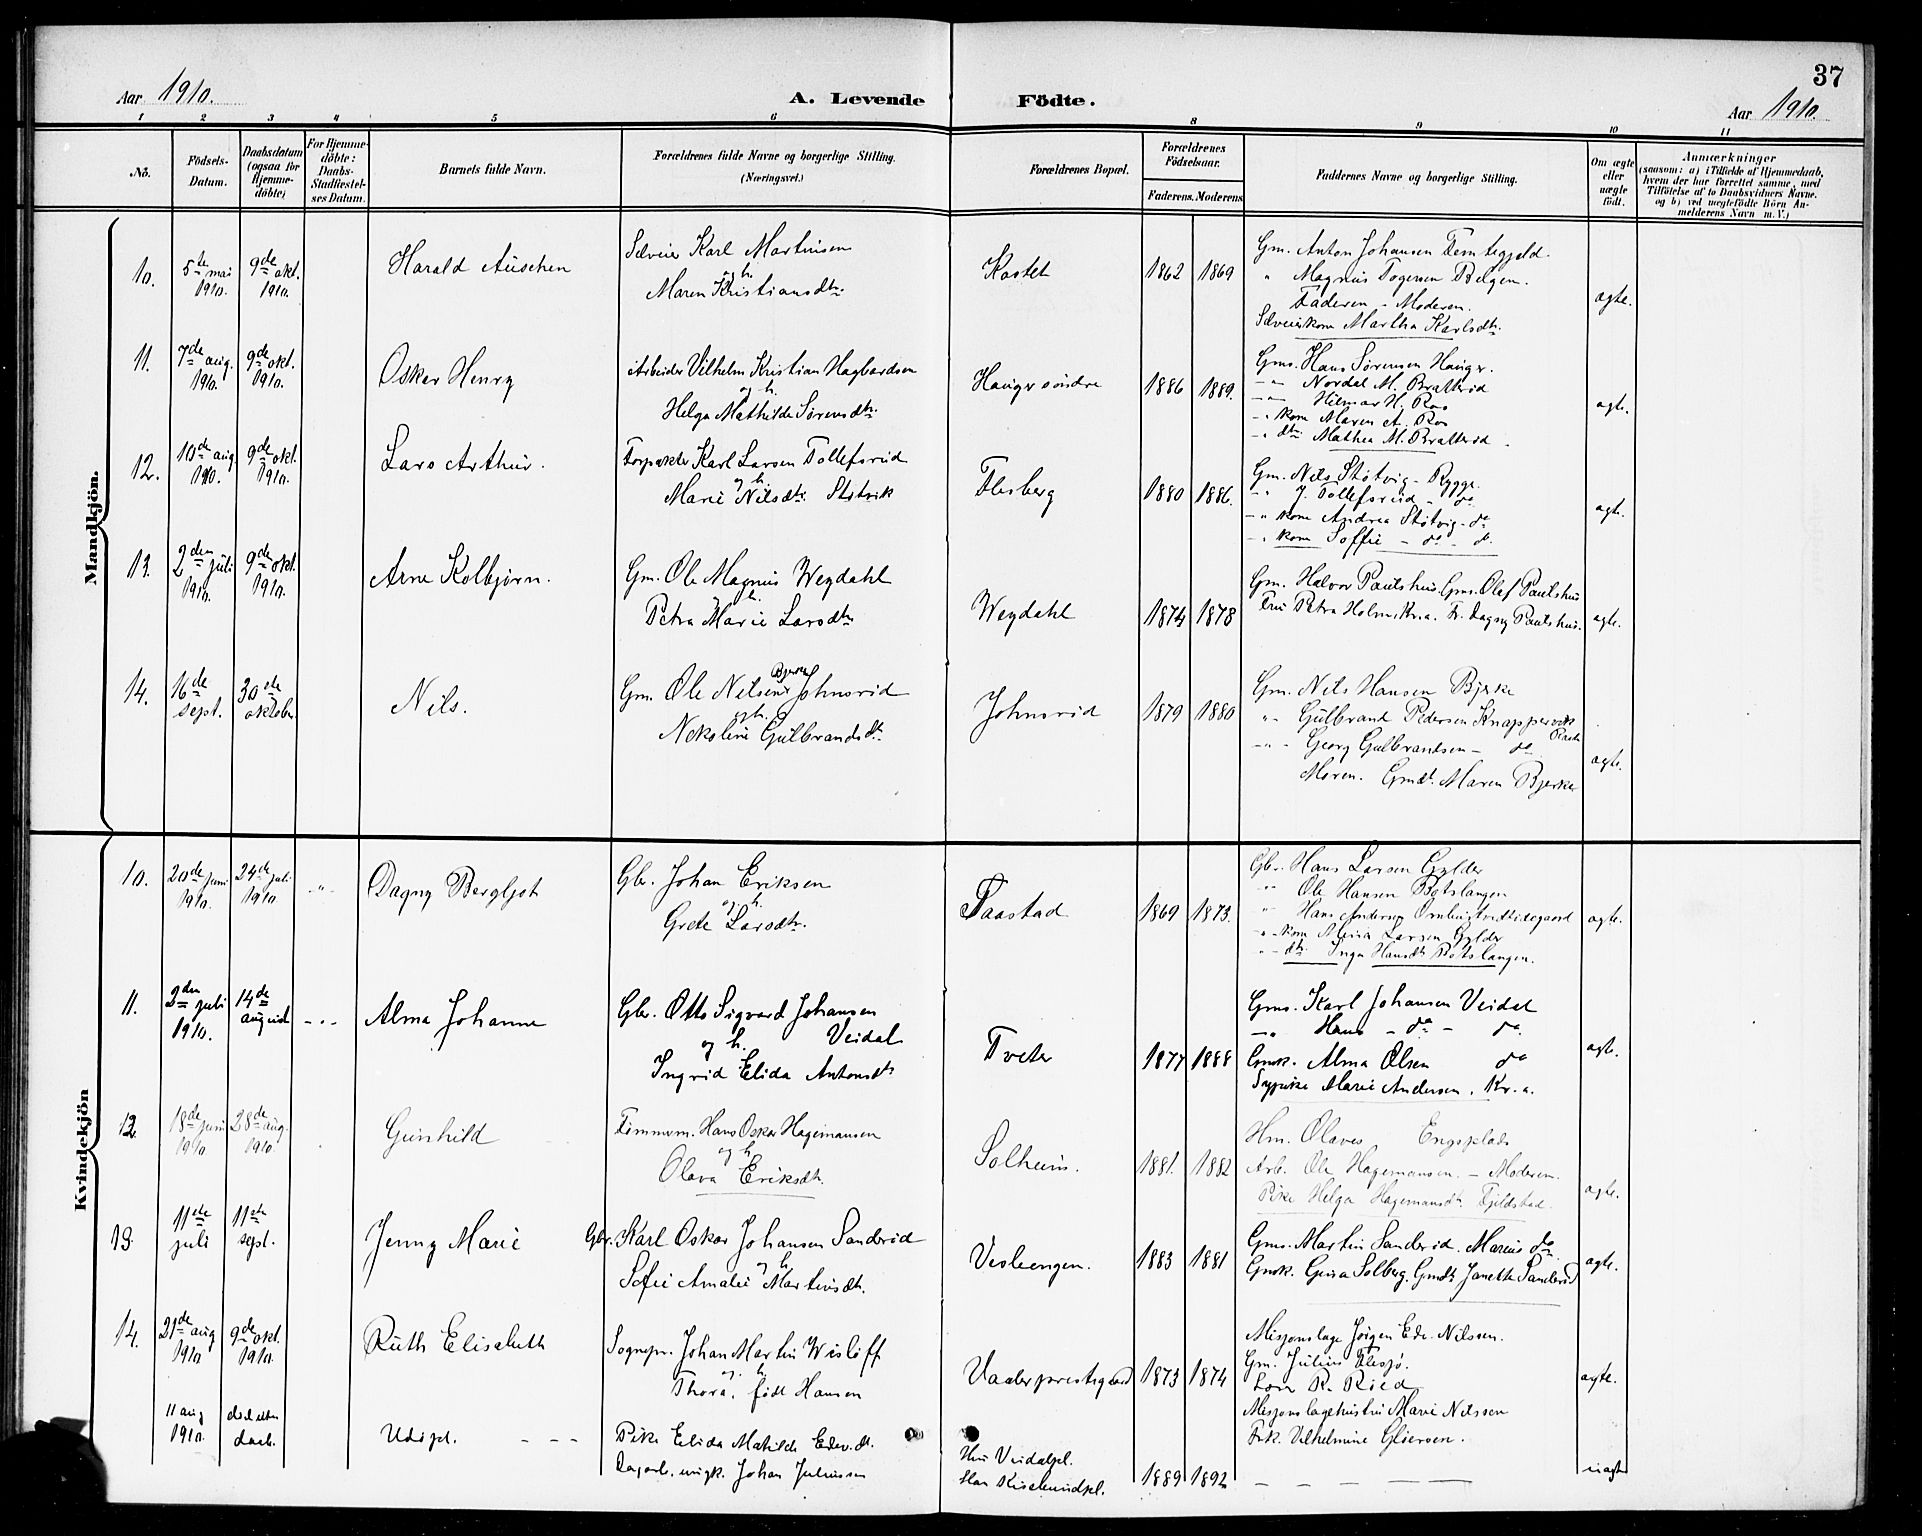 37
Aar 1910.
A. Levende Födte.
Aar 1910.
1 2 3 4 5 6 8 9 10 11
No.
Födsels-Datum.
Daabsdatum (ogsaa for Hjemme-döbte)
For Hjemme-döbte: Daabs-Stadfæstel-ses Datum.
Barnets fulde Navn.
Forældrenes fulde Navne og borgerlige Stilling.
(Næringsvei.)
Forældrenes Bopæl.
Forældrenes Födselsaar.
Faderens. Moderens
Faddernes Navne og borgerlige Stilling.
Om ægte eller uægte födt.
Anmærkninger
(saasom: a) i Tilfælde af Hjemmedaab,
hvem der har forrettet samme, med
Tilföielse af to Daabsvidners Navne.
og b) ved uægtefödte Börn An-
melderens Navn m. V.)
Mandkjön.
10. 5te mai 1910. 9de okt. 1910.
Harald
Karl Martinsen
og h.
Maren Kristiansdtr.
1862 1869
Gm. Anton Johansen
" Magnus
Faderen - Moderen.
Martha Karlsdtr.
ægte.
11. 7de aug. 1910. 9de okt. 1910.
Oskar Henry
Arbeider Vilhelm Kristian Hagbardsen
og h.
Helga Mathilde Sørensdtr.
Hauger søndre
1886 1889.
Gms. Hans Sørensen Hauger.
-"- Nordal M. Bratterud
-"- Hilmar H. Ros
-"- kone Maren A. Ros
-"- dtr. Mathea M. Bratterud.
ægte.
12. 10de aug. 1910. 9de okt. 1910.
Lars Arthur.
Forpakter Karl Larsen Tollefsrud
og h.
Marie Nilsdtr. Støtvik
Flesberg
1880 1886.
Gm. Nils Støtvig - Rygge.
-"- J. Tollefsrud - do
-"- kone Andrea Støtvig - do
-"- kone Soffie - do - do.
ægte.
13. 2den juli 1910. 9de okt. 1910.
Arne Kolbjørn.
Gm. Ole Magnus Weydahl
og h.
Petra Marie Larsdtr.
Weydahl
1874 1878
Gm. Halvor Pautshus. Gms. Olef Pautshus
Fru Petra Holm. Kr.a. Fr. Dagny Pautshus.
ægte.
14. 16de sept. 30de oktober.
Nils.
Bjerke
Gm. Ole Nilsen Johnsrud
og h.
Nikoline Gulbrandsdtr.
Johnsrud
1879 1880
Gm. Nils Hansen Bjerke
-"- Gulbrand Pedersen
-"- Georg Gulbrandsen - do
Moren. Gmdtr. Maren Bjerke
ægte.
Kvindekjön
10. 20de juni 1910. 24de juli 1910. -"-
Dagny Bergljot
Gbr. Johan Eriksen
og h.
Grete Larsdtr.
Taastad
1869 1873.
Gbr. Hans Larsen Gylder
-"- Ole Hansen Botslangen
-"- Hans Andersen
-"- kone Maria Larsen Gylder
-"- dtr. Inga Hansdtr Botslangen.
ægte.
11. 2den juli 1910. 14de august -"-
Alma Johanne
Gbr. Otto Sigvard Johansen
og h. Veidal
Ingrid Elida Antonsdtr
Tveter
1877 1888
Gms. Karl Johansen Veidal
-"- Hans - do - do.
Gmsk. Alma Olsen do
Sypike Marie Andersen. Kr.a.
ægte.
12. 18de juni 1910. 28de aug. 1910.
Gunhild
Tømmerm. Hans Oskar Hagemansen
og h.
Olava Eriksdtr.
Solheim.
1881. 1882
Hm. Olaves Engsplads
Arb. Ole Hagemansen. - Moderen.
Pike Helga Hagemansdtr. Fjeldstad.
ægte.
13. 11te juli 11te sept.
Jenny Marie
Gbr. Karl Oskar Johansen Sanderud
og h.
Sofie Amalie Martinsdtr.
Vesleengen.
1883 1881
Gms. Martin Sanderud. Marius do.
Gmsk. Gina Solberg. Gmdtr Janette Sanderud
ægte.
14. 21de aug 1910 9de okt. 1910.
Ruth Elisabeth
Sognepr. Johan Martin Wisløff
og h.
Thora, født Hansen
Vaaler prestegaard
1873 1874
Misjonslage Jørgen Edv. Nilssen.
Gm. Julius Flesjø.
R. Ried
Marie Nilssen
Frk. Vilhelmine Gløersen.
ægte.
11 aug 1910. død uden daab.
Udøpt. - - -
Pike Elida Matilde Edv.dt.
Dagarb. ungk. Johan Juliussen
Hun Veidalpl.
Han Kirkerudpl.
1889 1892
- - - -
uægte